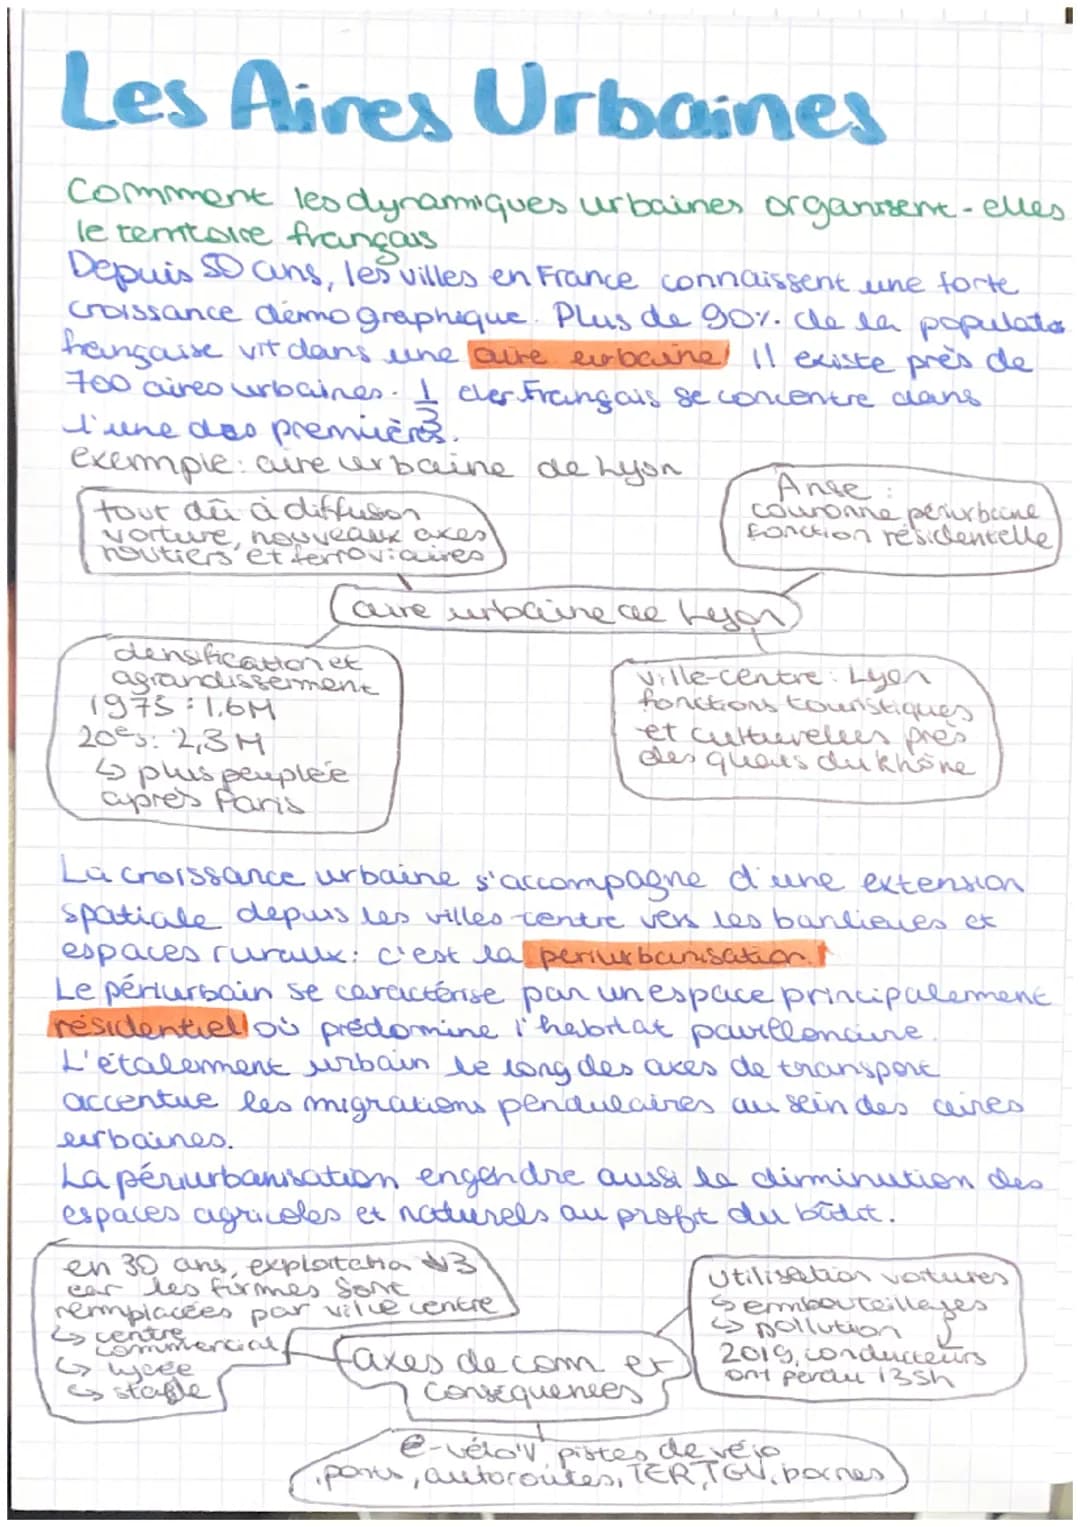 Les Aires Urbaines
Comment les dynamiques urbaines organisent-elles
le territoire français
Depuis 50 ans, les villes en France connaissent une forte
croissance démographique. Plus de 90% de la populato
française vit dans une aire urbaine Il existe près de
700 aires urbaines. 1/3 des Français se concentre dans
l'une des premières.
exemple: aire urbaine de Lyon
tout dû à diffusion
voiture, nouveaux axes
routiers et ferroviaires
Anse :
couronne périurbaine
fonction résidentielle
aire urbaine de Lyon
densification et
agrandissement
1975 : 1,6M
20es: 2,3M
↳ plus peuplée
après Paris
ville-centre: Lyon
fonctions touristiques
et culturelles près
des quais du Rhône
La croissance urbaine s'accompagne d'une extension
spatiale depuis les villes-centre vers les banlieues et
espaces ruraux: c'est la periurbanisation.
Le périurbain se caractérise par un espace principalement
résidentiel où prédomine l'habitat pavillonaire.
L'étalement urbain le long des axes de transport
accentue les migrations pendulaires au sein des aires
urbaines.
La périurbanisation engendre aussi la diminution des
espaces agricoles et naturels au profit du bâtit.
en 30 ans, exploitation ↓3
car les firmes sont
remplacées par ville centre
↳ centre
commercial
↳ lycée
↳ stade
Utilisation voitures
↳ embouteillages
↳ pollution ↓
2019, conducteurs
ont perdu 135h
axes de com et
conséquences
e-vélo'V pistes de vélo
, ports, autoroutes, TER, TGV, bornes